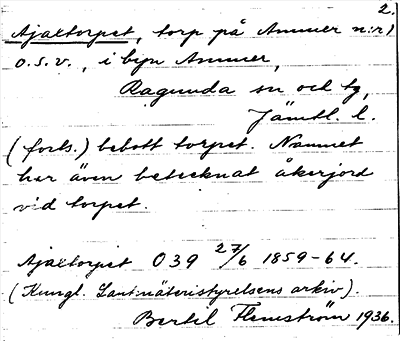 2.
Ajaxtorpet, torp på Ammer n:r 1
o.s.v., i byn Ammer,
Ragunda sn och tg,
Jämtl. l.
(forts.) bebott torpet. Namnet
har även betecknat åkerjord
vid torpet.
Ajaxtorpet O 39 27/6 1859-64.
(Kungl. Lantmäteristyrelsens arkiv).
Bertil Flemström 1936.